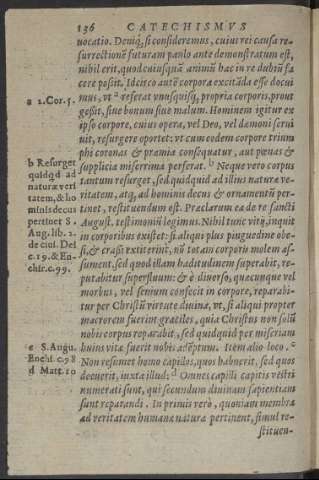 136 CATECHISMVS
uocatio. Deniq́, si consideremus, cuius rei causa re-
surrectionẽ futuram paulo ante demonstratum est,
nihil erit, quod cuiusquã animũ hac in re dubiũ fa
cere possit. Idcirco autẽ corpora excitãda esse docui
a 2. Cor. 5.
mus, vt ᵃ referat vnusquisq́, propria corporis, prout
gessit, siue bonum siue malum. Hominem igitur ex
ipso corpore, cuius opera, vel Deo, vel dæmoni serui
uit, resurgere oportet: vt cum eodem corpore trium
phi coronas & præmia consequatur, aut pœnas &
supplicia miserrima perferat. ᵇ Neque vero corpus
b Resurget
quidqd ad
naturæ veri
tatem, & ho
minis decus
pertinet S.
Aug. lib. 2.
de ciui. Dei
c. 19. & En-
chir. c. 99.
tantum resurget, sed quidquid ad illius naturæ ve-
ritatem, atq́, ad hominis decus & ornamentũ per-
tinet, restituendum est. Præclarum ea de re sancti
August. testimoniũ legimus. Nihil tunc vitij, inquit
in corporibus existet: si aliqui plus pinguedine obe-
si, & crassi extiterint, nũ totam corporis molem as-
sument, sed quod illam habitudinem superabit, re-
putabitur superfluum: & è diuerso, quæcunque vel
morbus, vel senium confecit in corpore, reparabi-
tur per Christũ virtute diuina, vt, si aliqui propter
macrorem fuerint graciles, quia Christus non solũ
nobis corpus reparabit, sed quidquid per miseriam
huius vitæ fuerit nobis adẽptum. Item alio loco. ᶜ
c S. Augu.
Enchi. c. 98
d Matt. 10
Non resumet homo capillos, quos habuerit, sed quos
decuerit, iuxta illud: ᵈ Omnes capilli capitis vestri
numerati sunt, qui secundum diuinam sapientiam
sunt reparandi. In primis verò, quoniam membra
ad veritatem humanæ naturæ pertinent, simul re-
stituen-